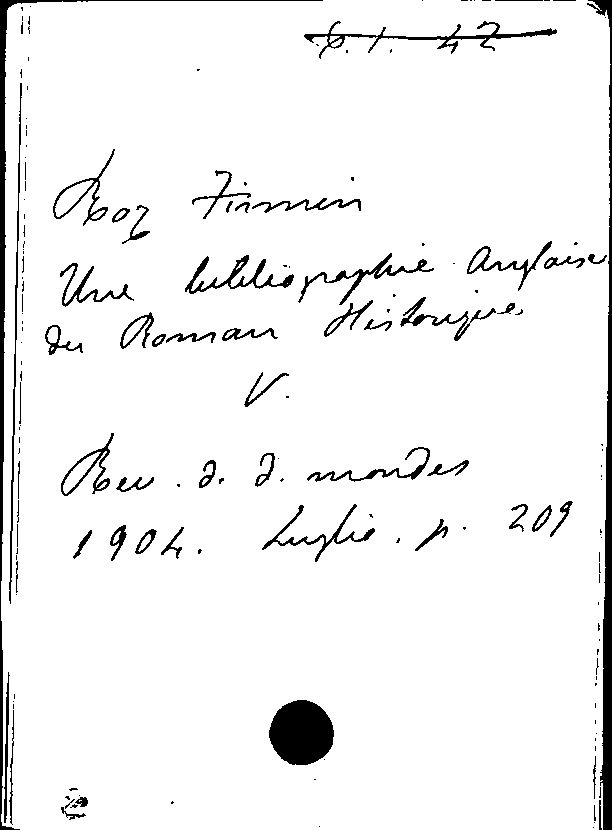 6. 1. 42
Roz Firmin
Une bibliographie Anglaise
du Roman Historique
V.
Rev. d. d. mondes
1904. Luglio. p. 209